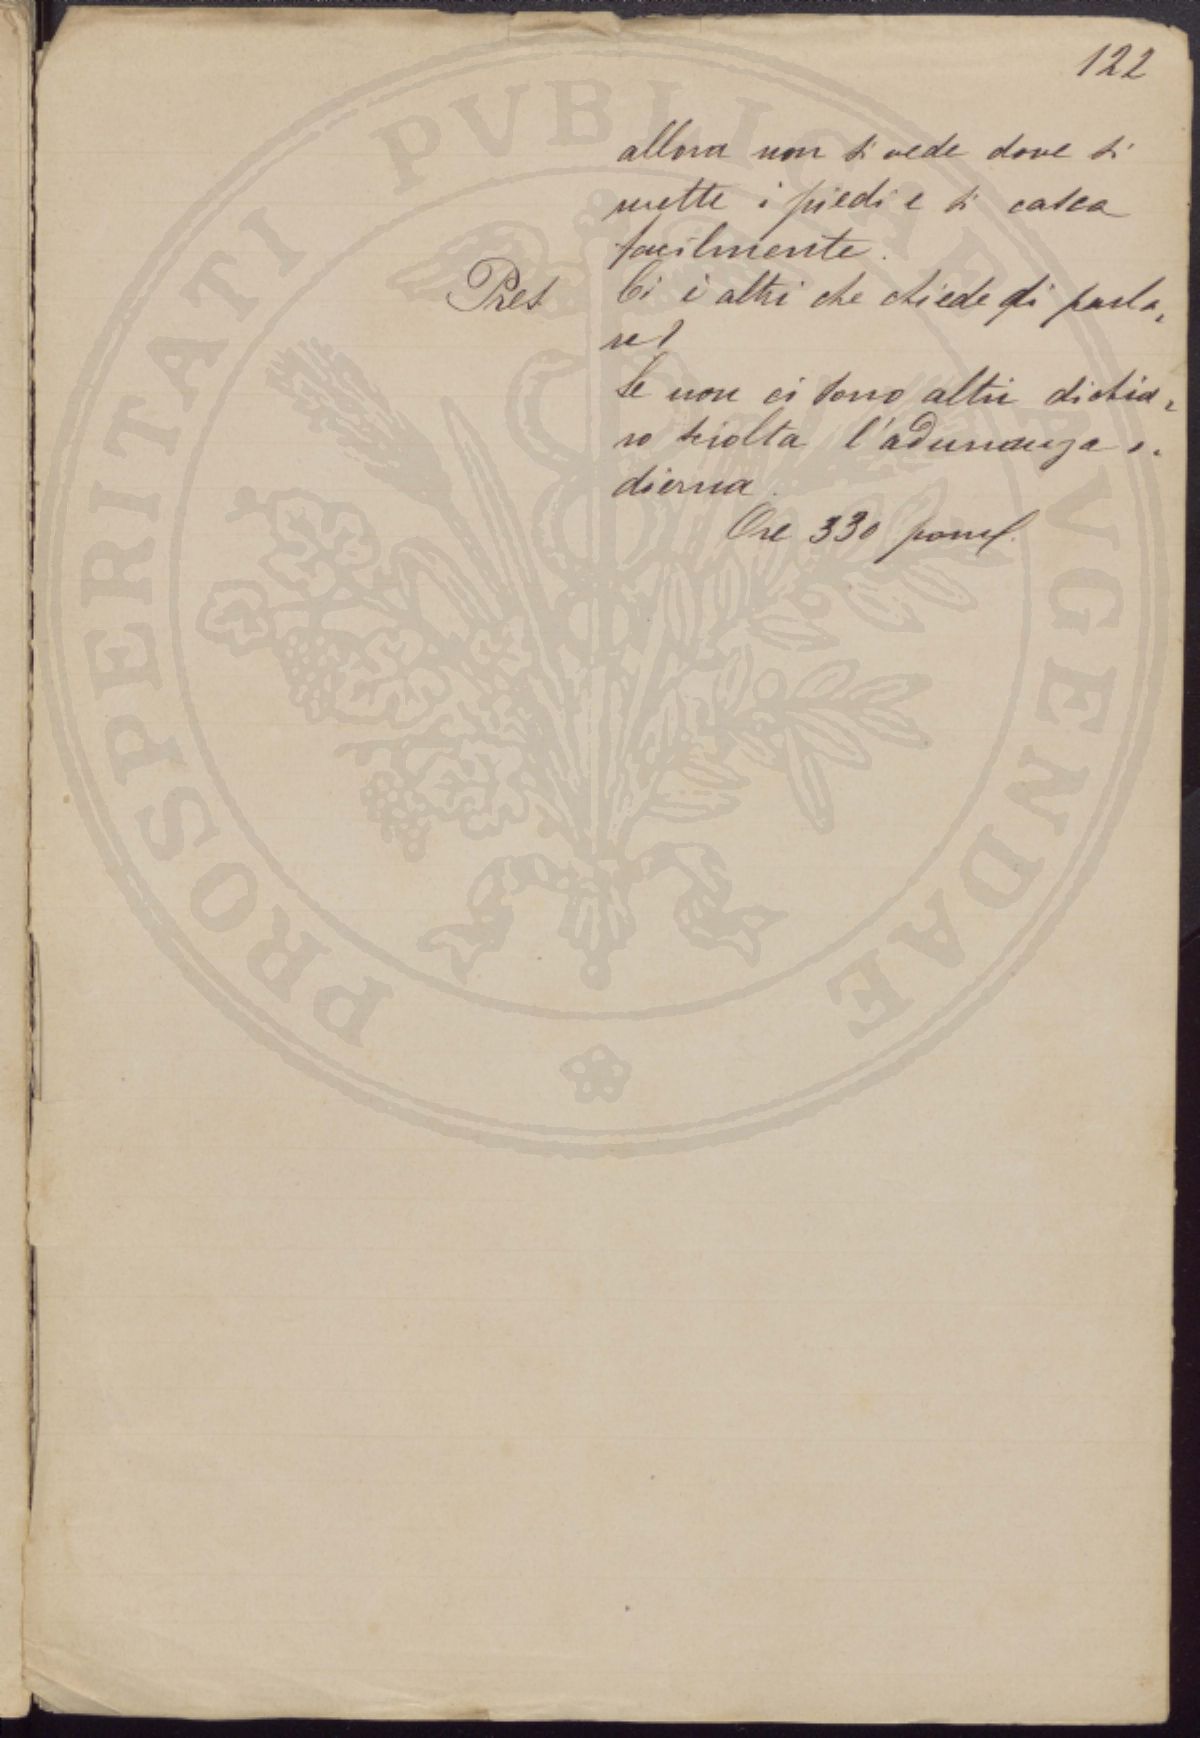 122
allora non si vede dove si
mette i piedi e si casca
facilmente.
Pres Ci è altri che chiede di parla-
re?
Se non ci sono altri dichia-
ro sciolta l'adunanza o-
dierna.
Ore 330 pom.
PROSPERITATI PVBLICAE AVGENDAE